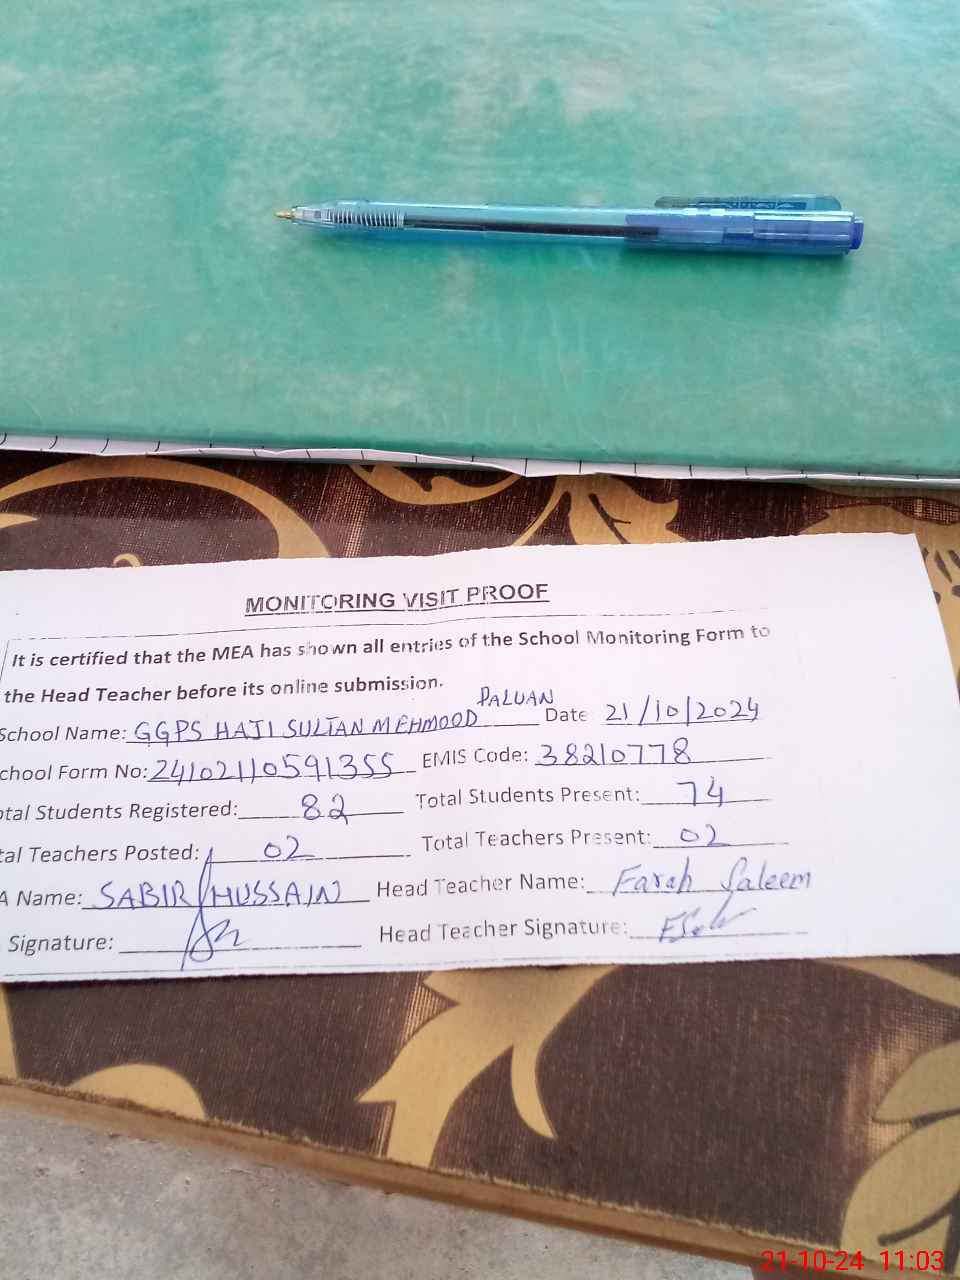 MONITORING VISIT PROOF
It is certified that the MEA has shown all entries of the School Monitoring Form to
the Head Teacher before its online submission.
School Name: GGPS HAJI SULTAN MEHMOOD PALUAN Date 21/10/2024
chool Form No: 24102110591355 EMIS Code: 38210778
otal Students Registered: 82 Total Students Present: 74
tal Teachers Posted: 02 Total Teachers Present: 02
A Name: SABIR HUSSAIN Head Teacher Name: Farah Saleem
Signature: Head Teacher Signature:
21-10-24 11:03